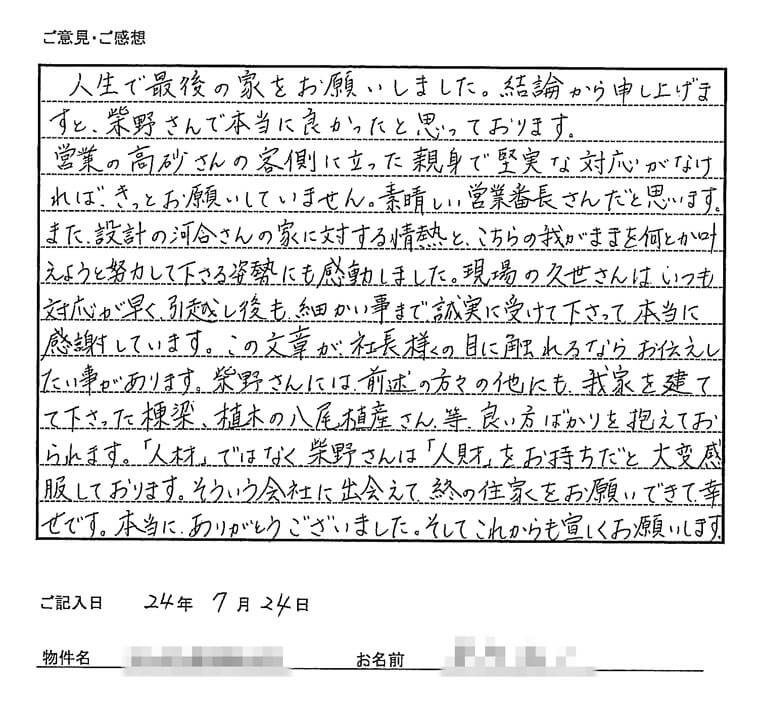 ご意見・ご感想
人生で最後の家をお願いしました。結論から申し上げま
すと、柴野さんで本当に良かったと思っております。
営業の高砂さんの客側に立った親身で堅実な対応がなけ
れば、きっとお願いしていません。素晴しい営業番長さんだと思います。
また、設計の河合さんの家に対する情熱と、こちらの我がままを何とか叶
えようと努力して下さる姿勢にも感動しました。現場の久世さんは、いつも
対応が早く、引越し後も、細かい事まで誠実に受けて下さって、本当に
感謝しています。この文章が、社長様の目に触れるなら、お伝えし
たい事があります。柴野さんには、前述の方々の他にも、我家を建て
て下さった棟梁、植木の八尾植産さん、等、良い方ばかりを抱えてお
られます。「人材」ではなく柴野さんは「人財」をお持ちだと、大変感
服しております。そういう会社に出会えて、終の住家をお願いできて、幸
せです。本当に、ありがとうございました。そしてこれからも宜しくお願いします。
ご記入日 24年 7月 24日
物件名 お名前